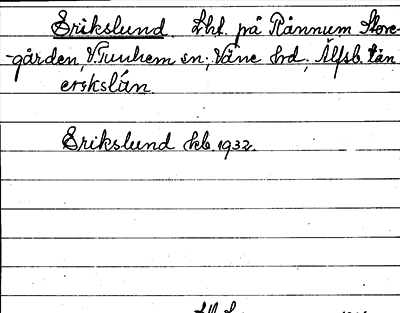 Erikslund. Lht. på Rånnum Store-
-gården, V. Tunhem sn; Väne hd, Älfsb. län
erikslún.
Erikslund kb. 1932.